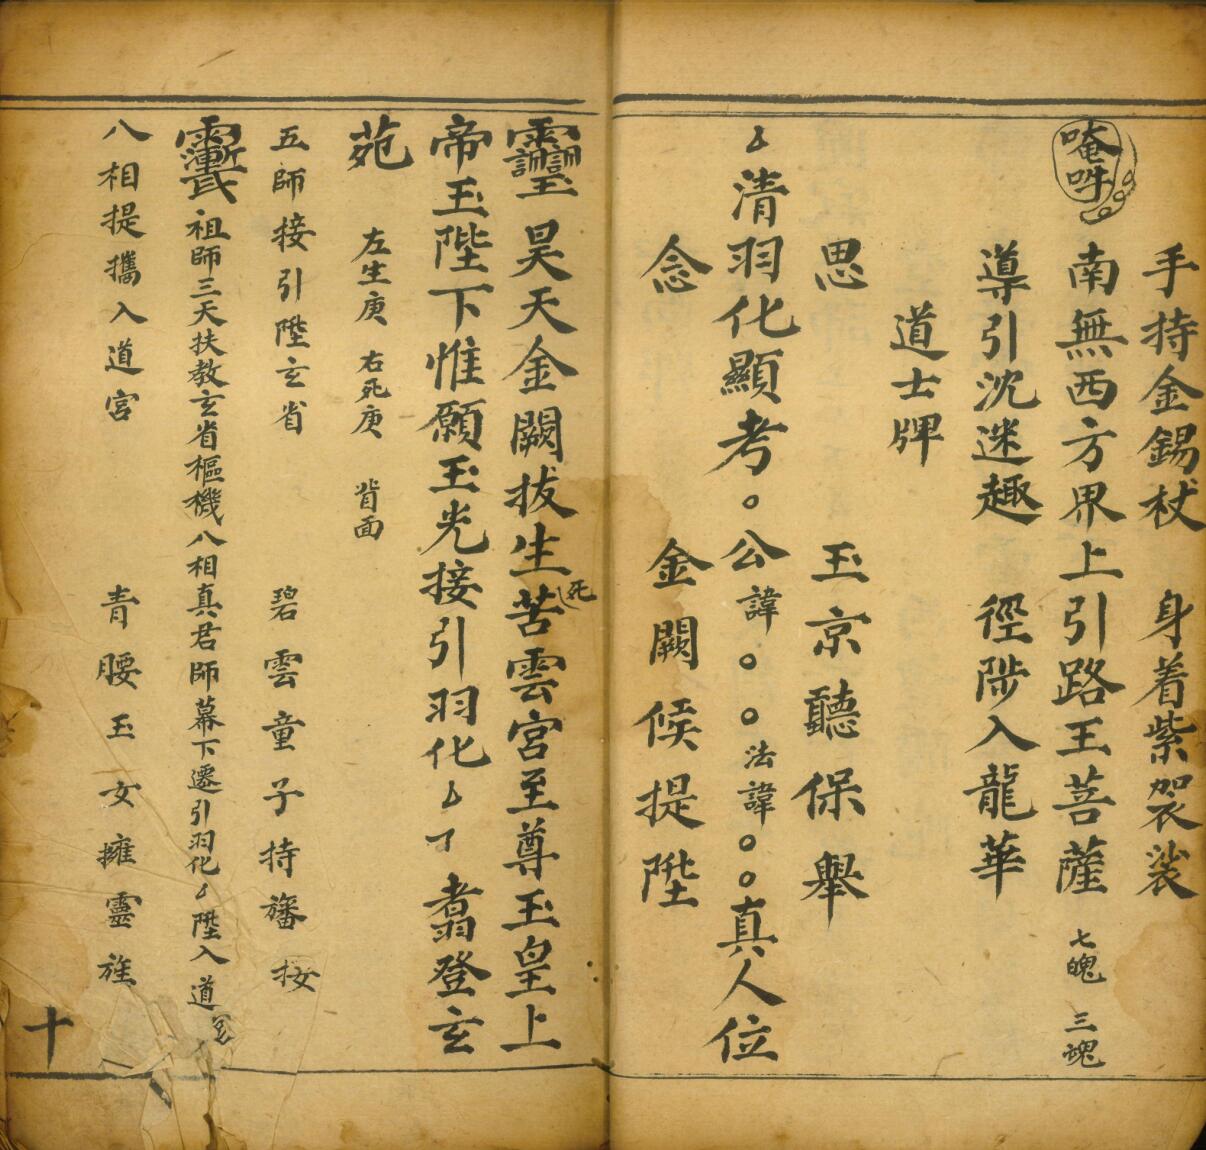 手持金錫杖　身着紫袈裟
唵吽　南無西方界上引路王菩薩　七魄　三魂
導引沈迷趣　徑陟入龍華
道士牌
思　玉京聽保舉
清羽化顯考〇公諱〇〇法諱〇〇真人位
念　金闕候提陞
昊天金闕拔生死苦雲宮至尊玉皇上
帝玉陛下惟願玉光接引羽化　翥登玄
苑　左生庚　右死庚　背面
五師接引陞玄省　碧雲童子持旛
祖師三天扶教玄省樞機八相真君師幕下遷引羽化　陞入道宮
八相提攜入道宮　青腰玉女擁靈旌
十